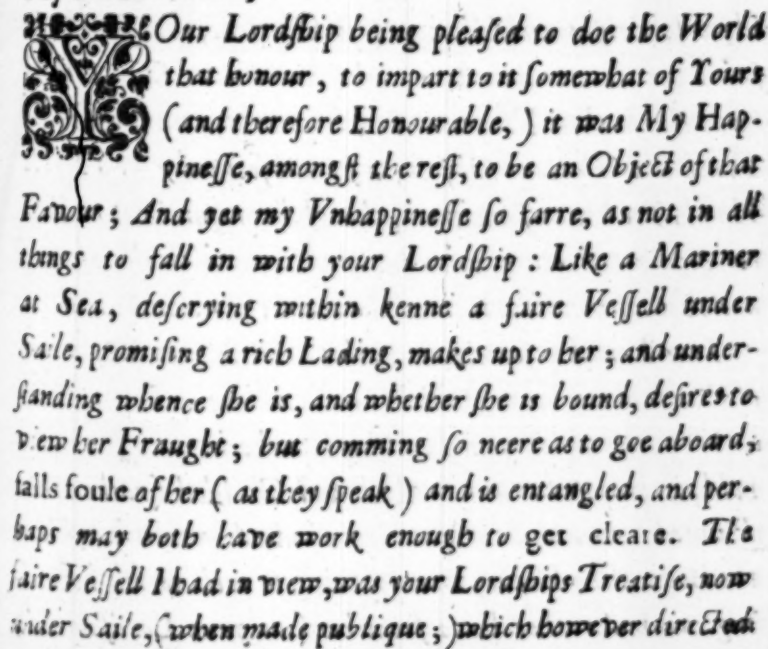 YOur Lordſhip being pleaſed to doe the World
that honour, to impart to it ſomewhat of Yours
(and therefore Honourable,) it was My Hap-
pineſſe, amongſt the reſt, to be an Object of that
Favour; And yet my Vnhappineſſe ſo farre, as not in all
things to fall in with your Lordſhip: Like a Mariner
at Sea, deſcrying within kenne a faire Veſſell under
Saile, promiſing a rich Lading, makes up to her; and under-
ſtanding whence ſhe is, and whether ſhe is bound, deſires to
view her Fraught; but comming ſo neere as to goe aboard,
falls foule of her (as they ſpeak) and is entangled, and per-
haps may both have work enough to get cleare. The
faire Veſſell I had in view, was your Lordſhips Treatiſe, now
under Saile, (when made publique;) which however directed